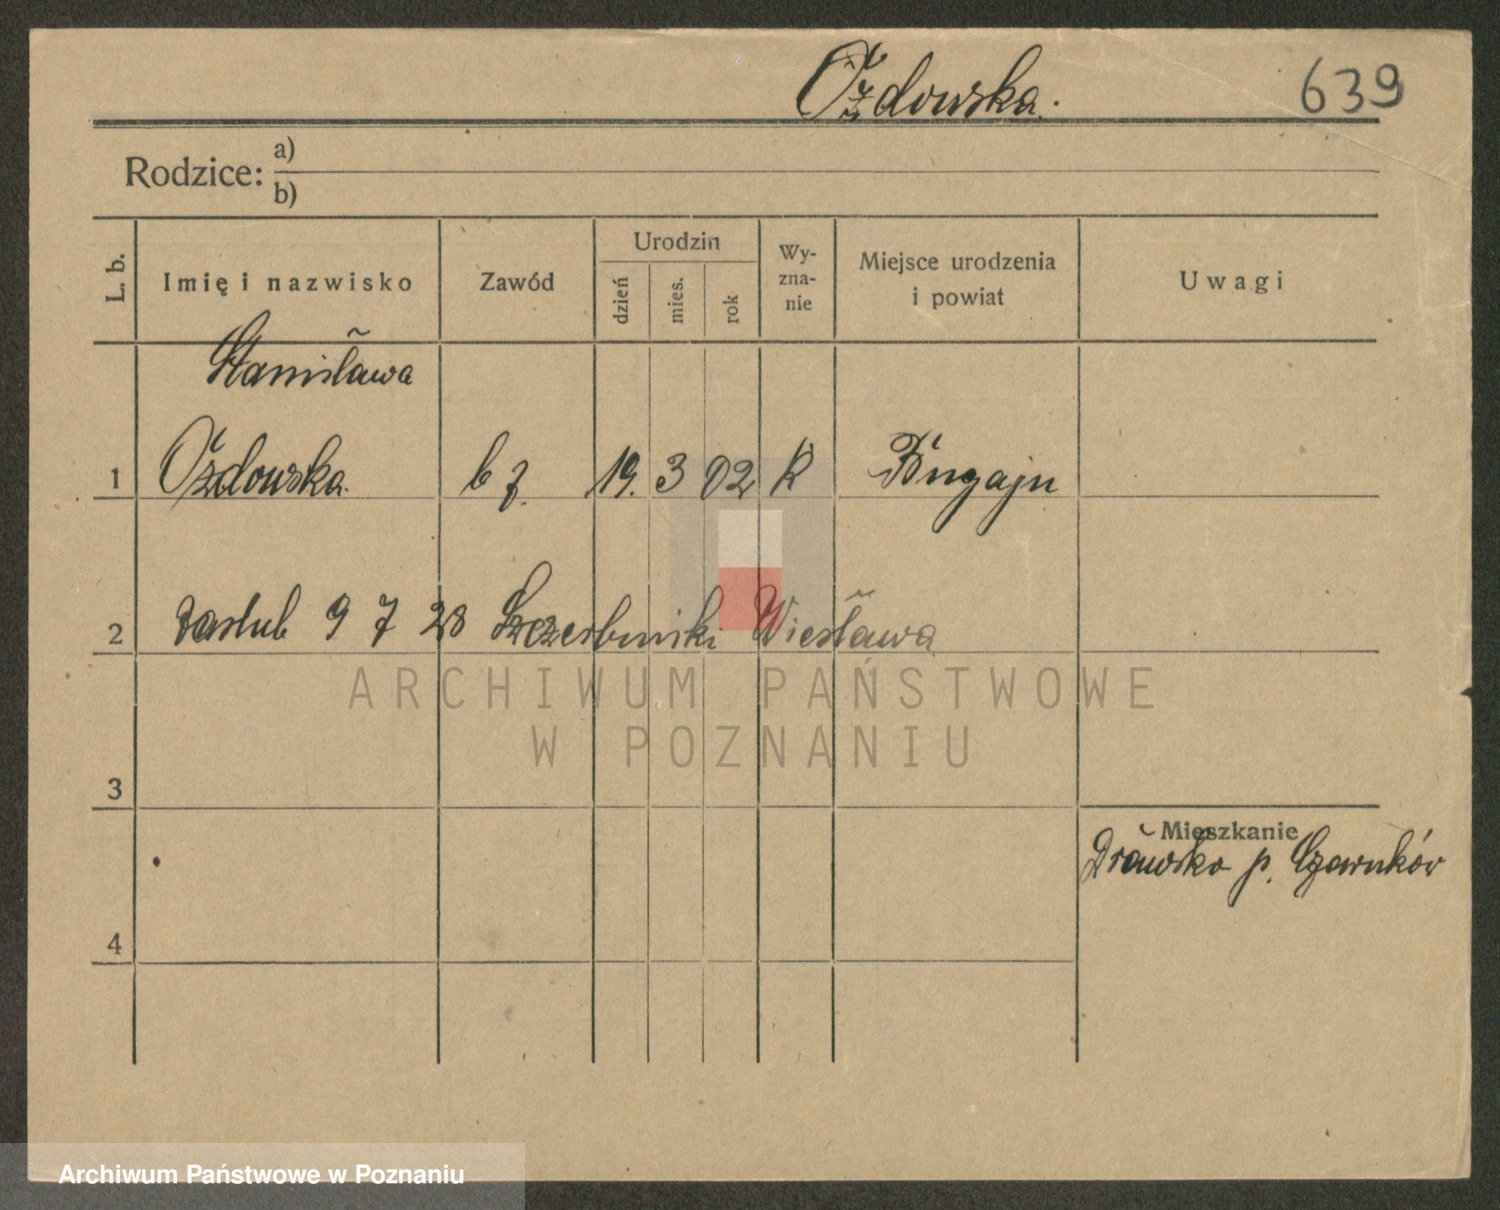 Ożdowska.
639
Rodzice: a)
b)
L. b.
Imię i nazwisko
Zawód
Urodzin
dzień
mies.
rok
Wy-
zna-
nie
Miejsce urodzenia
i powiat
Uwagi
Stanisława
1 Ożdowska b z. 19. 3 02 K Bugaju
2 zaślub 9 7 28 Wiesława
ARCHIWUM PAŃSTWOWE
W POZNANIU
3
Mieszkanie
Drawsko p. Czarnków
4
Archiwum Państwowe w Poznaniu